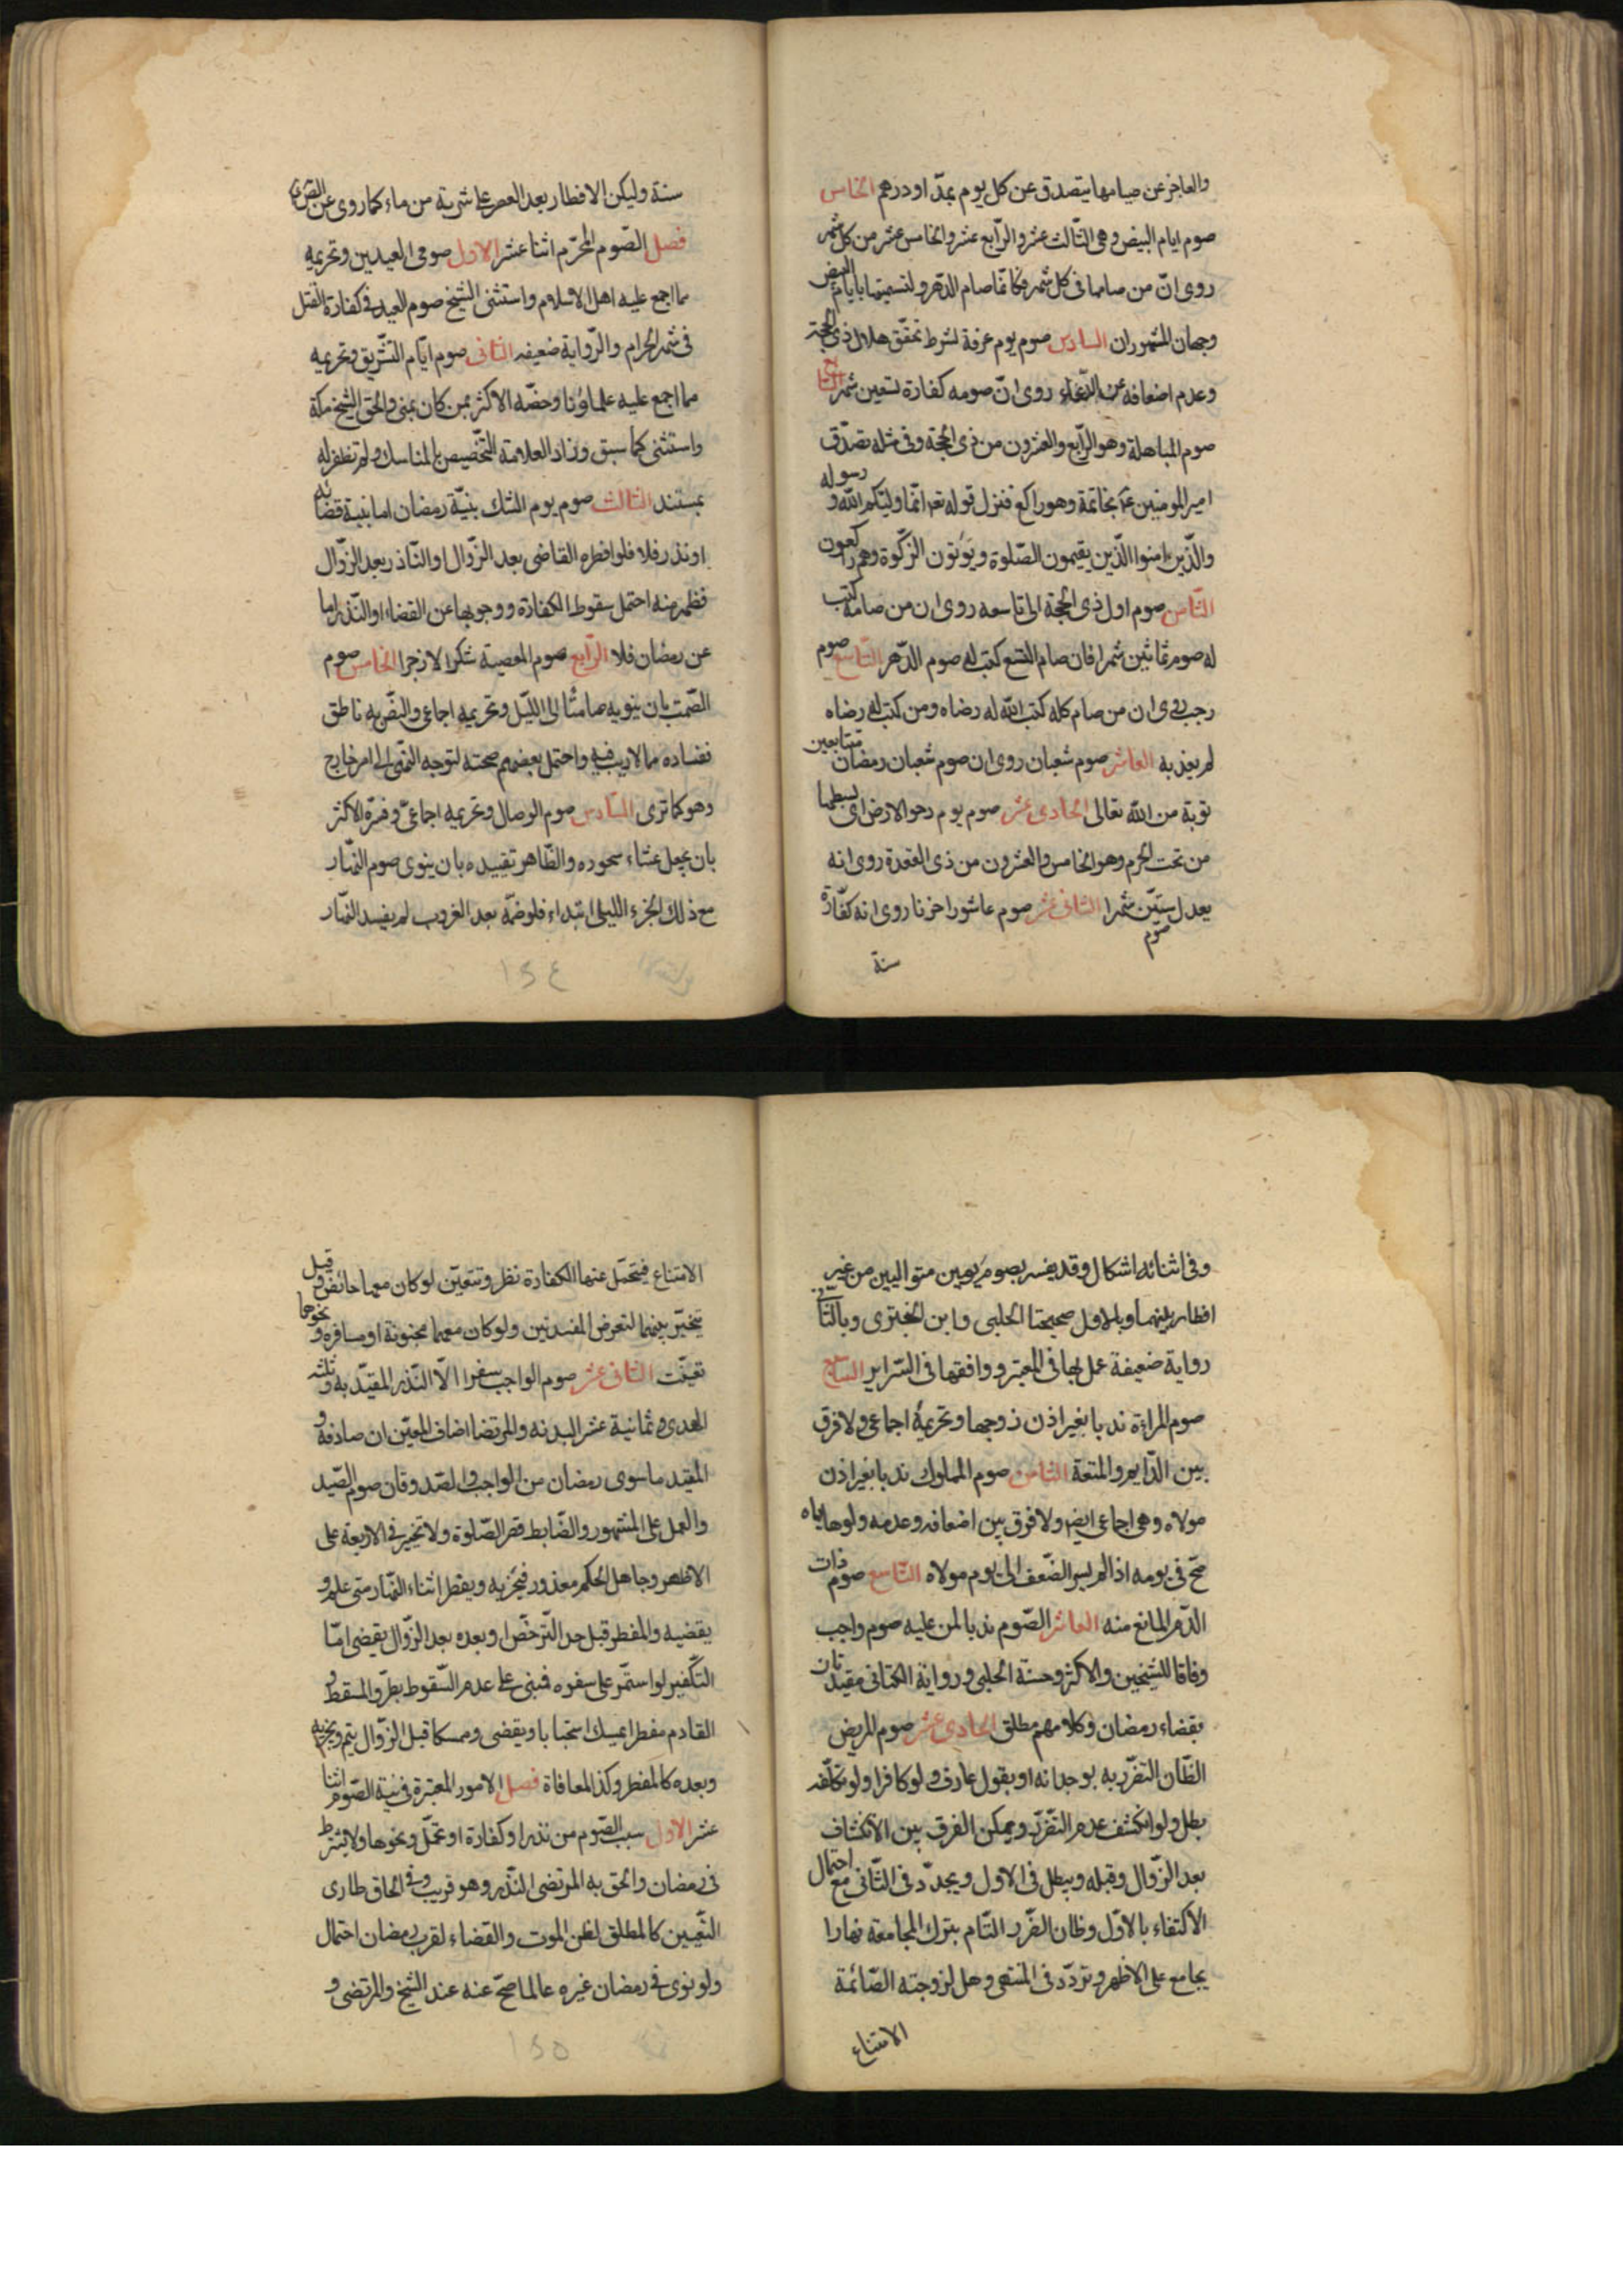 والعاجز عن صيامها يتصدق عن كل يوم بمدّ او درهم الخامس
صوم ايام البيض وهى الثّالث عشر والرّابع عشر والخامس عشر من كل شهر
روى انّ من صامها فى كل شهر فكانّما صام الدّهر ولتسميتها بايام البيض
وجهان المشهوران السادس صوم يوم عرفة بشرط تحقّق هلال ذى الحجة
وعدم اضعافه عن الدّعاء روى انّ صومه كفارة تسعين شهرا السابع
صوم المباهلة وهو الرّابع والعشرون من ذى الحجة وفى مثله تصدّق
امير المومنين ع بخاتمة وهو راكع فنزل قوله تع انّما وليّكم اللّه و رسوله
والّذين امنوا الّذين يقيمون الصّلوة ويؤتون الزّكوة وهم راكعون
الثّامن صوم اول ذى الحجة الى تاسعه روى ان من صامه كتب
له صوم ثمانين شهرا فان صام التسع كتب له صوم الدّهر التّاسع صوم
رجب روى ان من صام كله كتب اللّه له رضاه ومن كتب له رضاه
لم يعذبه العاشر صوم شعبان روى ان صوم شعبان رمضان متتابعين
توبة من اللّه تعالى الحادى عشر صوم يوم دحو الارض اى بسطها
من تحت الحرم وهو الخامس والعشرون من ذى القعدة روى انه
يعدل صوم ستّين شهرا الثانى عشر صوم عاشورا حزنا روى انه كفّارة
سنة
سنة وليكن الافطار بعد العصر على شربة من ماء كما روى عن الصّ
فصل الصّوم المحرّم اثنا عشر الاول صومى العيدين وتحريمه
مما اجمع عليه اهل الاسلام واستثنى الشيخ صوم العيد فى كفارة القتل
فى شهر الحرام والرّواية ضعيفه الثانى صوم ايّام التّشريق وتحريمه
مما اجمع عليه علماؤنا وخصّه الاكثر بمن كان بمنى والحق الشيخ مكّة
واستثنى كما سبق وزاد العلامة التّخصيص بالمناسك ولم نظفر له
بمستند الثالث صوم يوم الشك بنيّة رمضان اما بنية قضائه
او نذر فلا فلو افطره القاضى بعد الزّوال او النّاذر بعد الزّوال
فظهر منه احتمل سقوط الكفارة ووجوبها عن القضاء او النّذر اما
عن رمضان فلا الرّابع صوم المعصية شكرا لا زجرا الخامس صوم
الصّمت بان ينويه صامتا الى اللّيل وتحريمه اجماعى والنصّ به ناطق
نفساده مما لاريب فيه واحتمل بعضهم صحته لتوجه النّهى الى امر خارج
وهو كما ترى السّادس صوم الوصال وتحريمه اجماعىّ وفسّره الاكثر
بان يجعل عشاء سحوره والظّاهر تقييده بان ينوى صوم النّهار
مع ذلك الجزء الليلى ابتداء فلو ضمّه بعد الغروب لم يفسد النّهار
١٢٤
وفى اثنائه اشكال وقد يفسر بصوم يومين متواليين من غير
افطار بينهما وبالاول صحيحتا الحلبى وابن البخترى وبالثانى
رواية ضعيفة عمل بها فى المعتبر ووافقها فى السّراير السّابع
صوم المراة ندبا بغير اذن زوجها وتحريمه اجماعى ولا فرق
بين الدّايم والمتعة الثامن صوم المملوك ندبا بغير اذن
مولاه وهى اجماعى ايض ولا فرق بين اضعافه وعدمه ولو هاياه
صحّ فى يومه اذا لم يسر الضّعف الى يوم مولاه التّاسع صوم ذات
الدّم المانع منه العاشر الصّوم ندبا لمن عليه صوم واجب
وفاقا للشيخين والاكثر وحسنة الحلبى ورواية الكنانى مقيدتان
بقضاء رمضان وكلامهم مطلق الحادى عشر صوم المريض
الظّان التضرّر به بوجدانه او بقول عارف ولو كافرا ولو تكلّفه
بطل ولو انكشف عدم التّضرّر ويمكن الفرق بين الانكشاف
بعد الزّوال وقبله ويبطل فى الاول ويجدّد فى الثّانى مع احتمال
الاكتفاء بالاوّل وظان الضّرر التّام بترك المجامعة نهارا
يجامع على الاظهر وتردّد فى المنتهى وهل لزوجته الصّائمة
الامتناع
الامتناع فيتحمّل عنها الكفارة نظر وتتعيّن لو كان معها حائض و قيل
يتخيّر بينهما لتعرض المفسدتين ولو كان معها مجنونة او مسافرة و نحوها
تعيّنت الثانى عشر صوم الواجب سفرا الّا النّذر المقيّد به و ثلثه
الهدى وثمانية عشر البدنه والمرتضا اضاف المعيّن ان صادفه و
المفيد ما سوى رمضان من الواجب والصّدوقان صوم الصّيد
والعمل على المشهور والضّابط قصر الصّلوة ولا تخيّر فى الاربعة على
الاظهر وجاهل الحكم معذور فيجزيه ويفطر اثناء النّهار متى علم و
يقضيه والمفطر قبل حد التّرخّص او بعده بعد الزّوال يقضى امّا
التّكفير لو استمّر على سفره فبنى على عدم السّقوط بطرو المسقط و
القادم مفطرا يمسك استحبابا ويقضى وممسكا قبل الزّوال يتم ويجزيه
وبعده كالمفطر وكذا المعافاة فصل الامور المعتبرة فى نية الصّوم اثنا
عشر الاول سبب الصّوم من نذر او كفارة او تحمّل ونحوها ولا يشترط
فى رمضان والحق به المرتضى النّذر وهو قريب وفى الحاق طارى
التّعيين كالمطلق لظن الموت والقضاء لقرب رمضان احتمال
ولو نوى فى رمضان غيره عالما صحّ عنه عند الشيخ والمرتضى و
١٢٥